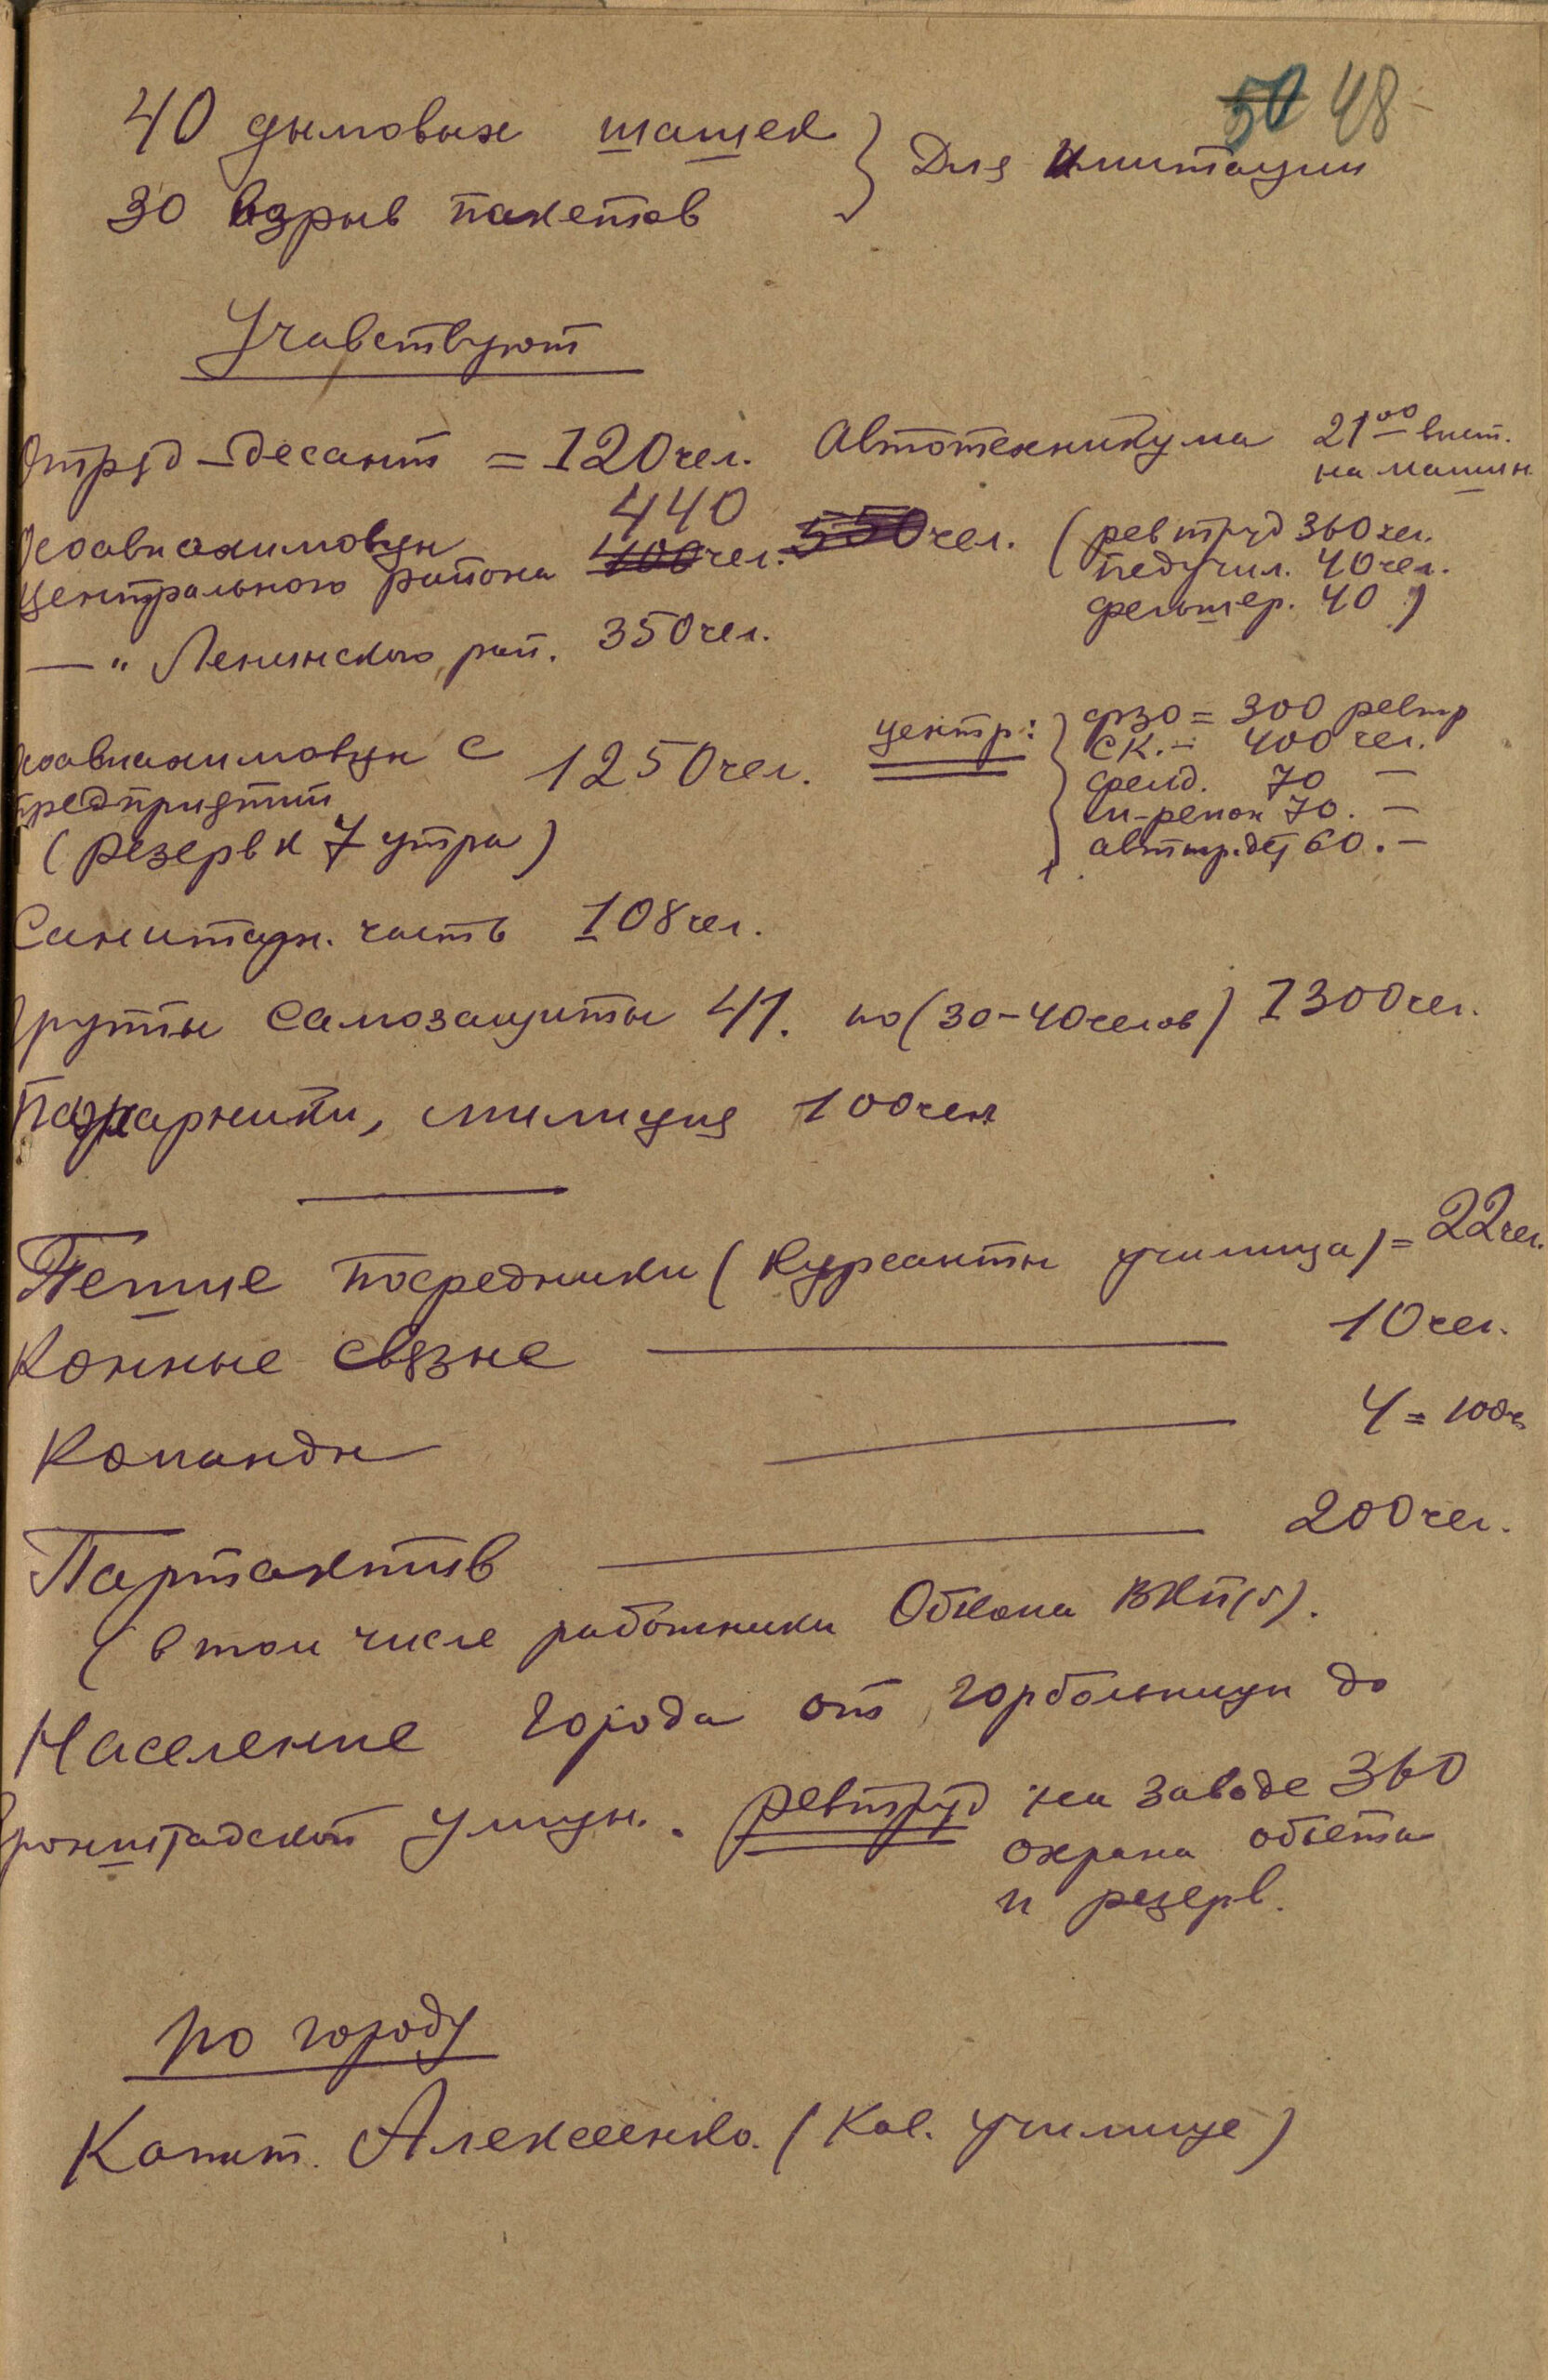 50 48
40 дымовых шашек } Для имитации
30 взрыв пакетов
Учавствуют
Отряд-десант = 120 чел. Автотехникума 21⁰⁰ выст. на машин.
Осоавиахимовцы Центрального района 440 400 чел. 550 чел. (ревтруд 360 чел.
педучил. 40 чел.
фельшер. 40)
—"— Ленинского рай. 350 чел.
Осоавиахимовцы с предприятий 1250 чел.
(резерв к 7 утра)
центр: фзо = 300 ревтр
СК. – 400 чел.
70 —
70. —
60. —
Санитарн. часть 108 чел.
Группы самозащиты 41. по (30-40 челов) 1300 чел.
Пожарники, милиция 100 чел
Пешие посредники (Курсанты училища) = 22 чел.
Конные связые — 10 чел.
Команды — 4 = 100 ч
Партактив — 200 чел.
(в том числе работники Обкома ВКП(б).
Население города от горбольницы до
Кронштадской улицы. ревтруд на заводе 360
охрана обьета
и резерв.
по городу
Капит. Алексеенко. (Кав. училище)